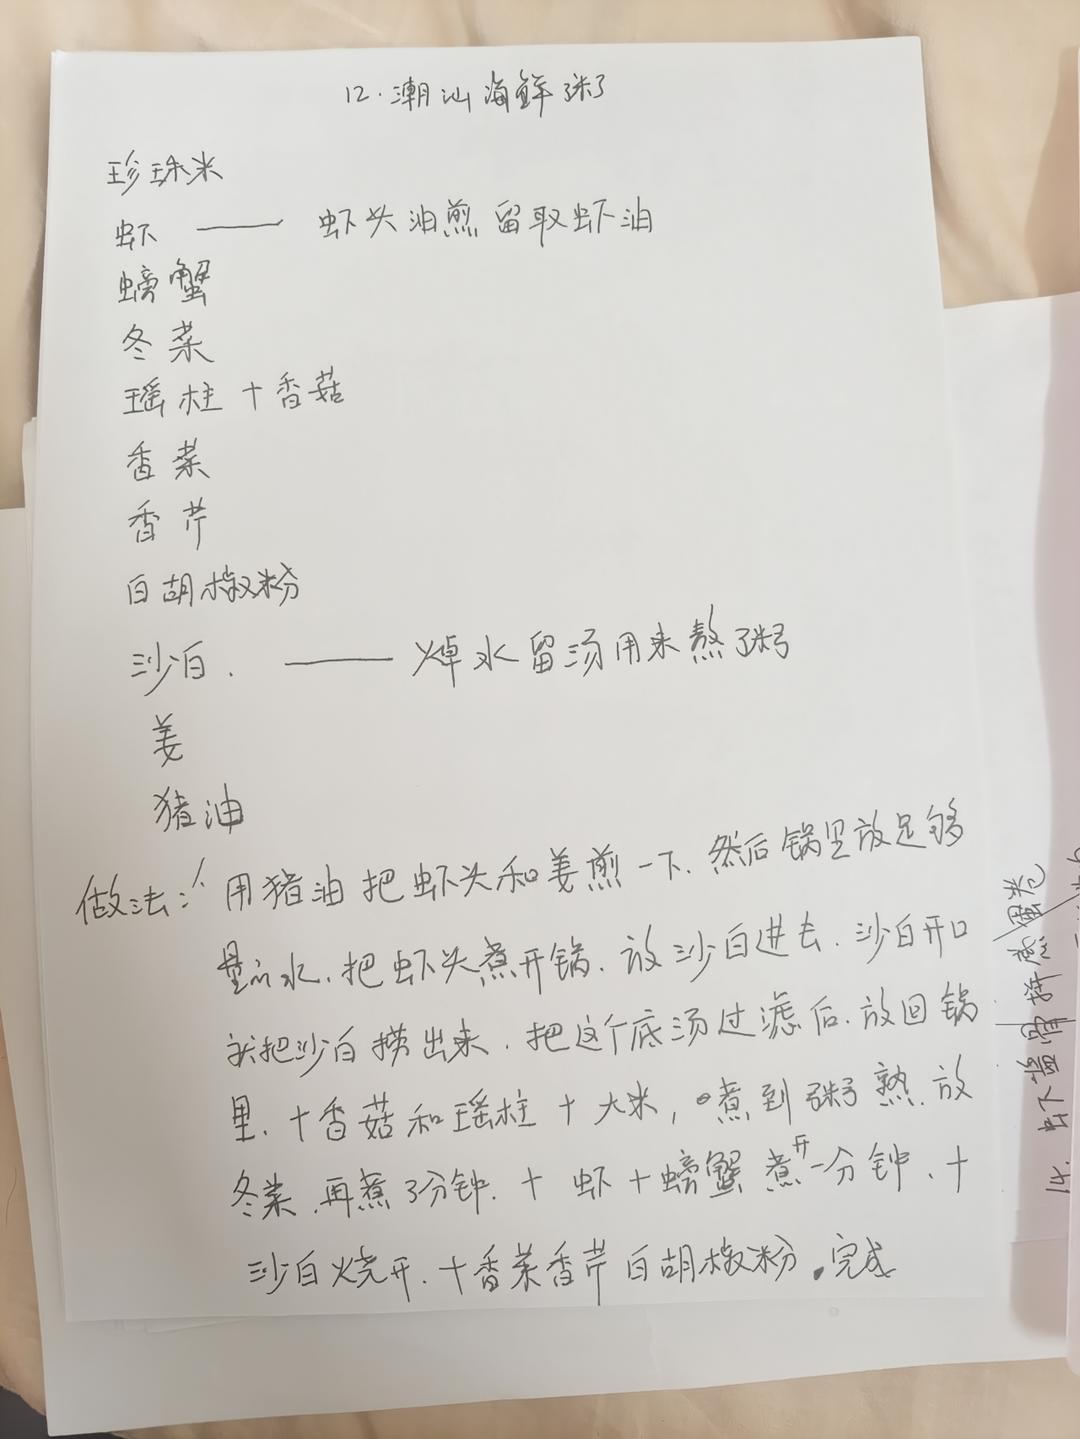 12.潮汕海鲜粥
珍珠米
虾 —— 虾头油煎留取虾油
螃蟹
冬菜
瑶柱+香菇
香菜
香芹
白胡椒粉
沙白. —— 焯水留汤用来熬粥
姜
猪油
做法: 用猪油把虾头和姜煎一下.然后锅里放足够
量的水.把虾头煮开锅.放沙白进去.沙白开口
就把沙白捞出来.把这个底汤过滤后.放回锅
里.+香菇和瑶柱+大米,煮到粥熟.放
冬菜.再煮3分钟.+虾+螃蟹煮开一分钟.+
沙白烧开.+香菜香芹白胡椒粉.完成
14.虾下
蛋卷